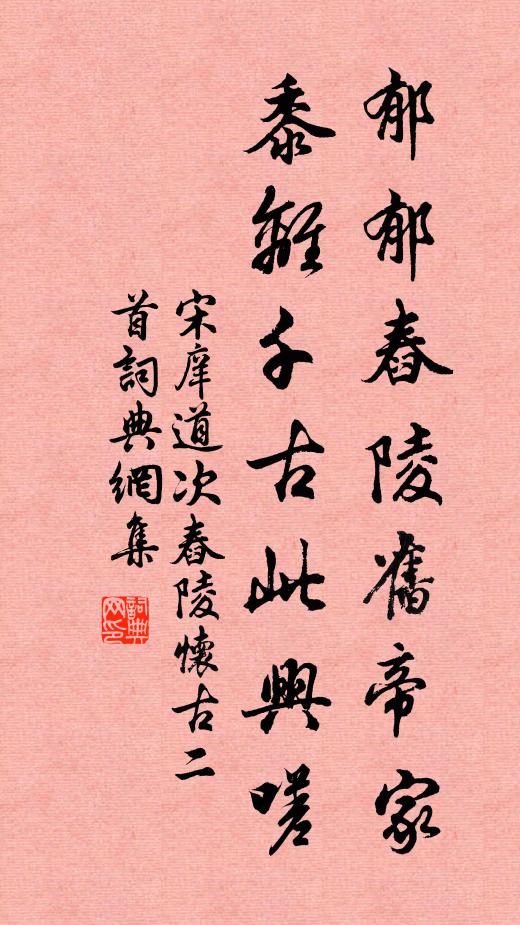 郁郁舂陵舊帝家
黍離千古此興嗟
宋庠道次舂陵懷古二
首詞典網集
詞典
网印